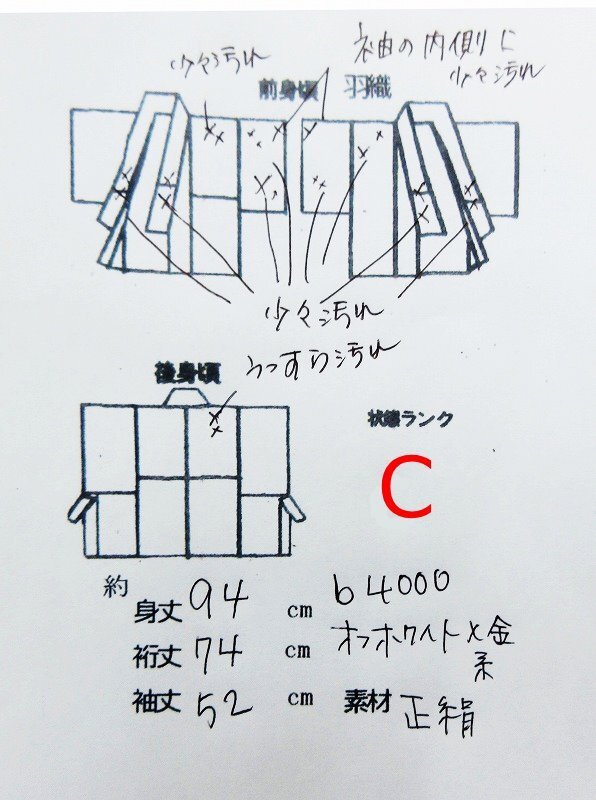 少々汚れ
袖の内側に
少々汚れ
前身頃 羽織
少々汚れ
うっすら汚れ
後身頃
状態ランク
C
約
身丈 94 cm b4000
裄丈 74 cm オフホワイト×金
系
袖丈 52 cm 素材 正絹